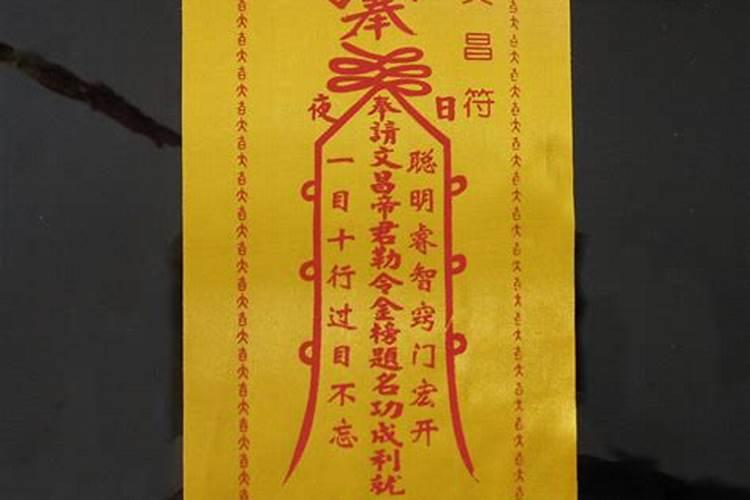 昌符
日
聪明睿智窍门宏开
奉請文昌帝君勒令金榜題名功成利就
夜
一目十行过目不忘